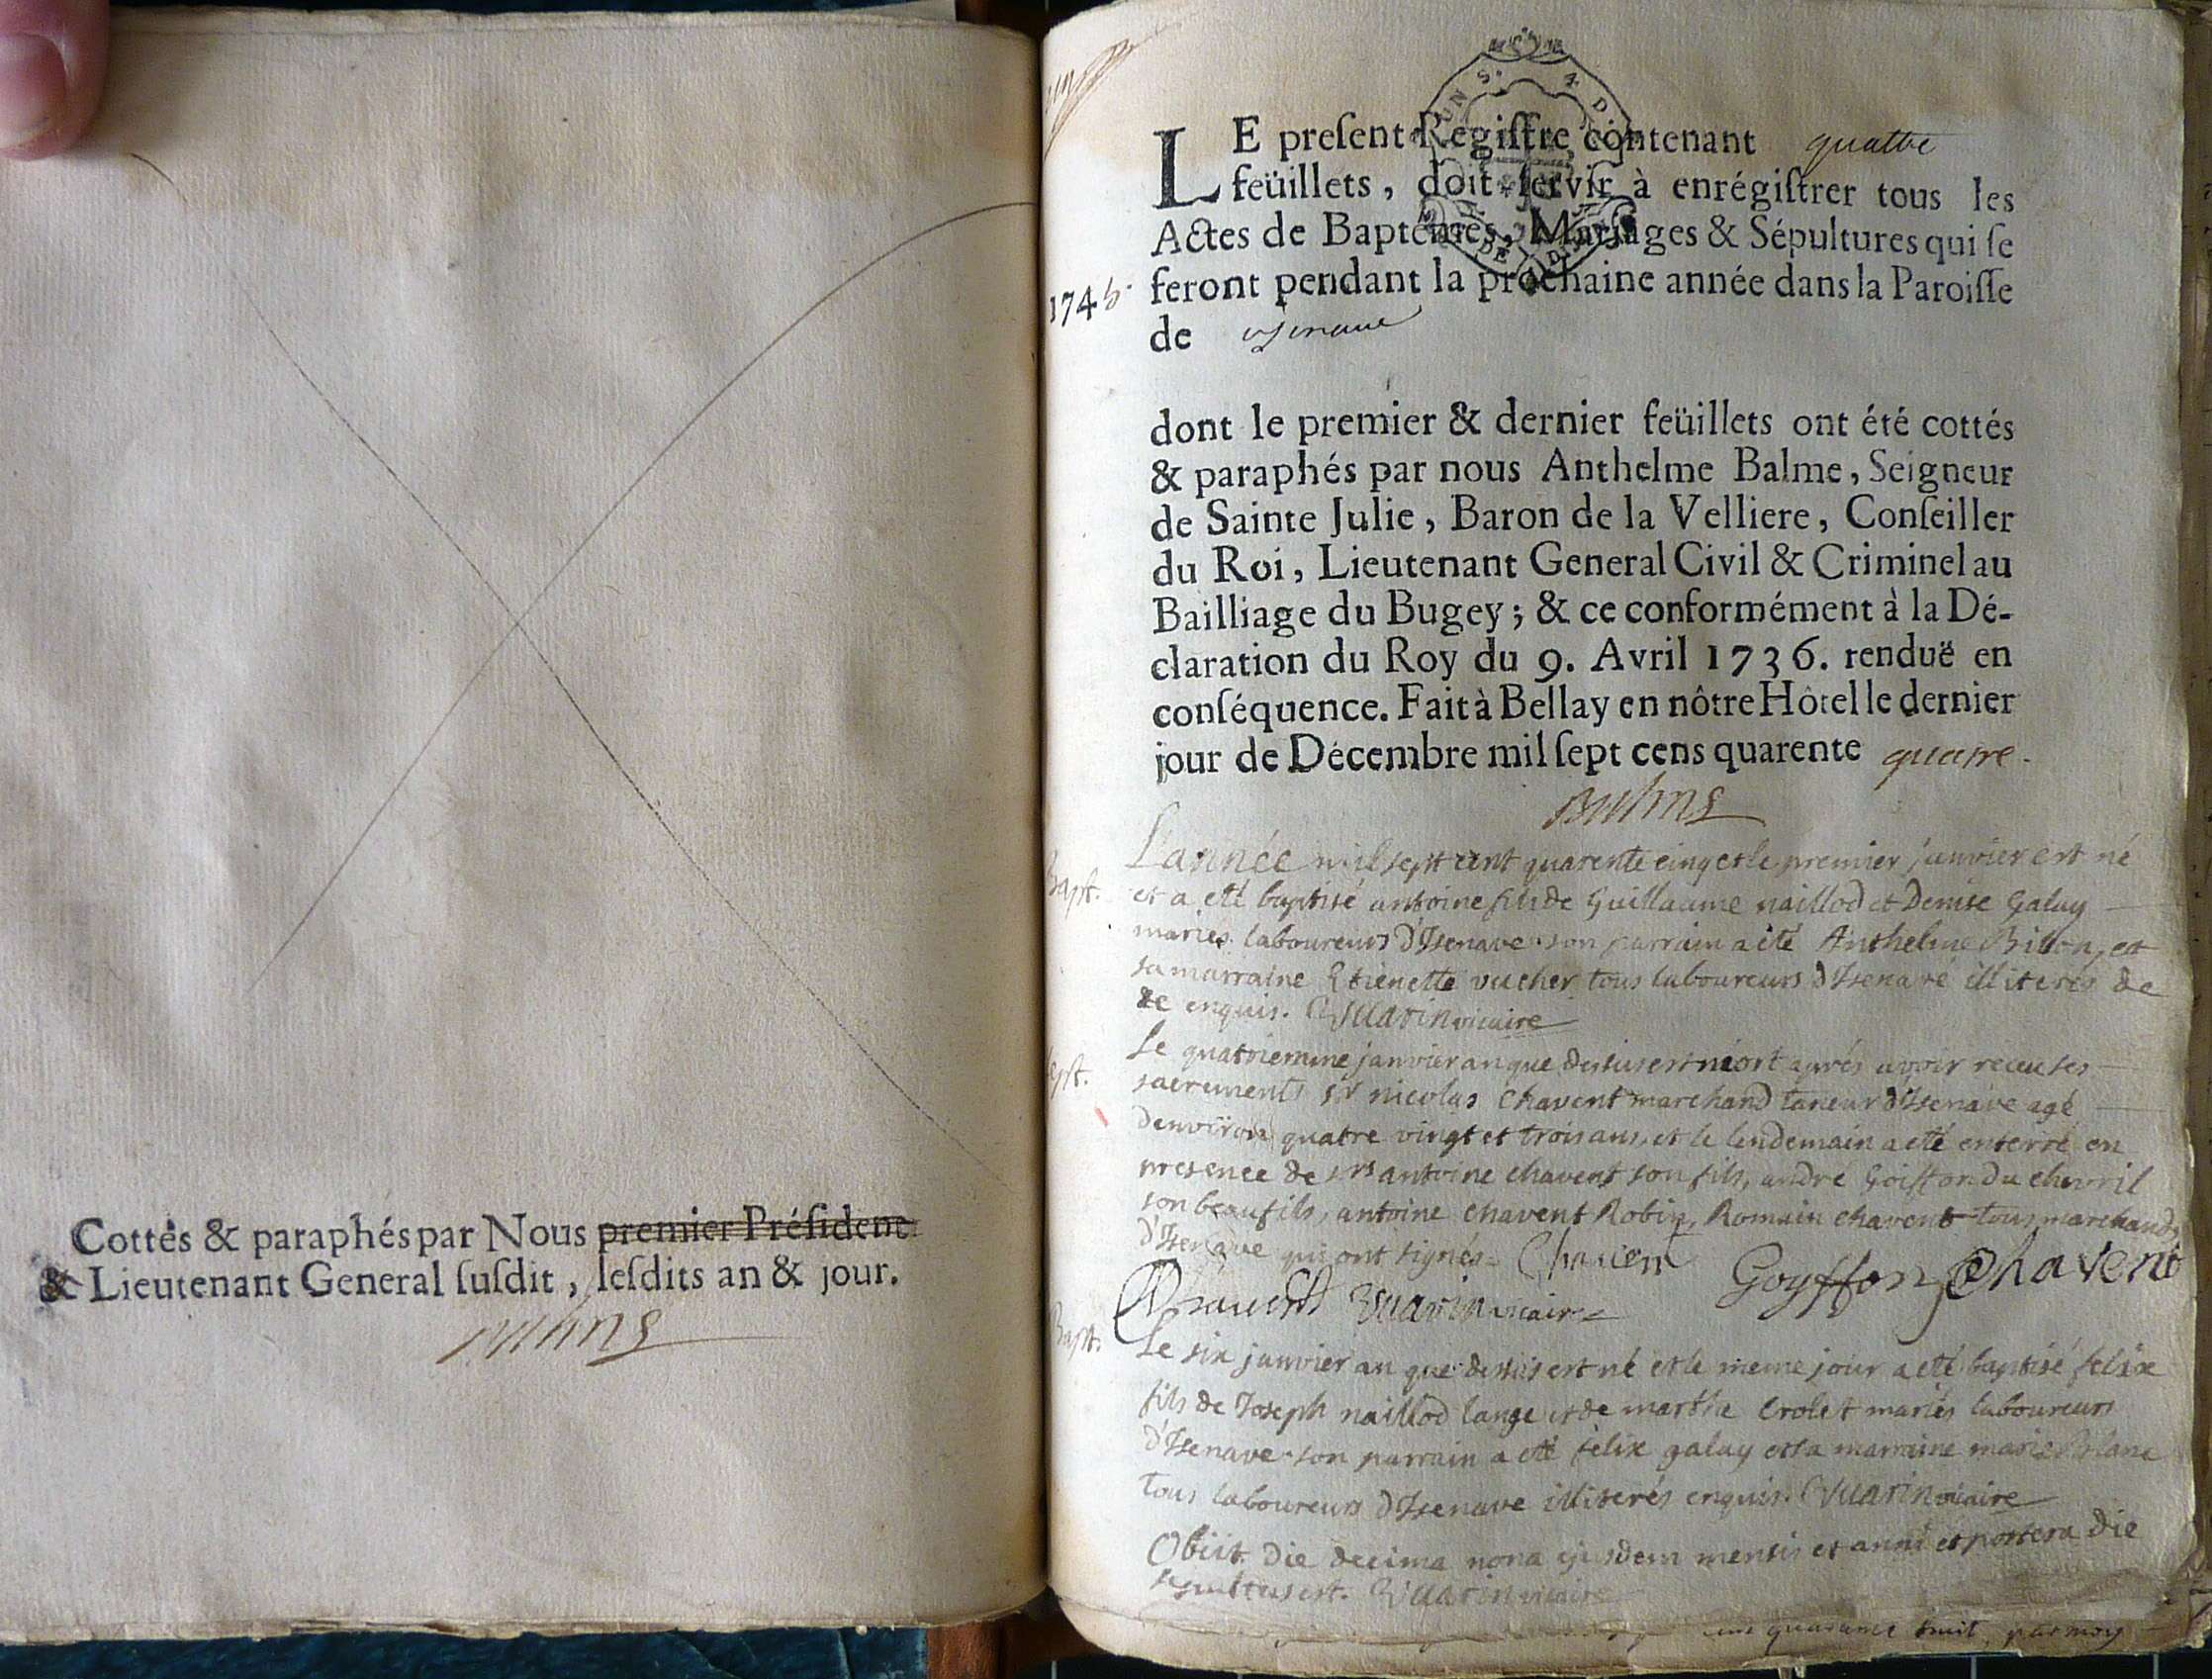 Cottés & paraphés par Nous premier Préſident
& Lieutenant General ſuſdit, leſdits an & jour.
LE preſent Regiſtre contenant quattre
feüillets, doit ſervir à enrégiſtrer tous les
Actes de Baptêmes, Mariages & Sépultures qui ſe
feront pendant la prochaine année dans la Paroiſſe
1745.
de
dont le premier & dernier feüillets ont été cottés
& paraphés par nous Anthelme Balme, Seigneur
de Sainte Julie, Baron de la Velliere, Conſeiller
du Roi, Lieutenant General Civil & Criminel au
Bailliage du Bugey; & ce conformément à la Dé-
claration du Roy du 9. Avril 1736. renduë en
conſéquence. Fait à Bellay en nôtre Hôtel le dernier
jour de Décembre mil ſept cens quarente quatre.
Bapt.
L'année mil sept cent quarente cinq et le premier janvier est né
et a eté baptisé antoine fils de Guillaume naillod et Denise Galay
mariés laboureurs d'Isenave son parrain a eté Anthelme Billon, et
sa marraine Etienette vucher tous laboureurs d'Isenave illiterés de
ce enquis. Vuarin vicaire
Le quatriemme janvier an que dessus est mort aprés avoir receu ses
sacrements sr nicolas Chavent marchand taneur d'Isenave agé
denviron quatre vingt et trois ans, et le lendemain a eté enterré en
presence de srs antoine chavent son fils, andre Goiffon du chevril
son beaufils, antoine chavent Robin, Romain chavent tous marchands
d'Isenave qui ont signés. Chavent Goyffon Chavent
Chavent Vuarin vicaire
Bapt.
Le six janvier an que dessus est né et le meme jour a eté baptisé felix
fils de Joseph naillod lange et de marthe Crolet mariés laboureurs
d'Isenave son parrain a eté felix galay et sa marraine marie Blanc
tous laboureurs d'Isenave illiterés enquis. Vuarin vicaire
Obiit die decima nona ejusdem mensis et anni et postera die
sepultus est. Vuarin vicaire
quarante huit, par moy